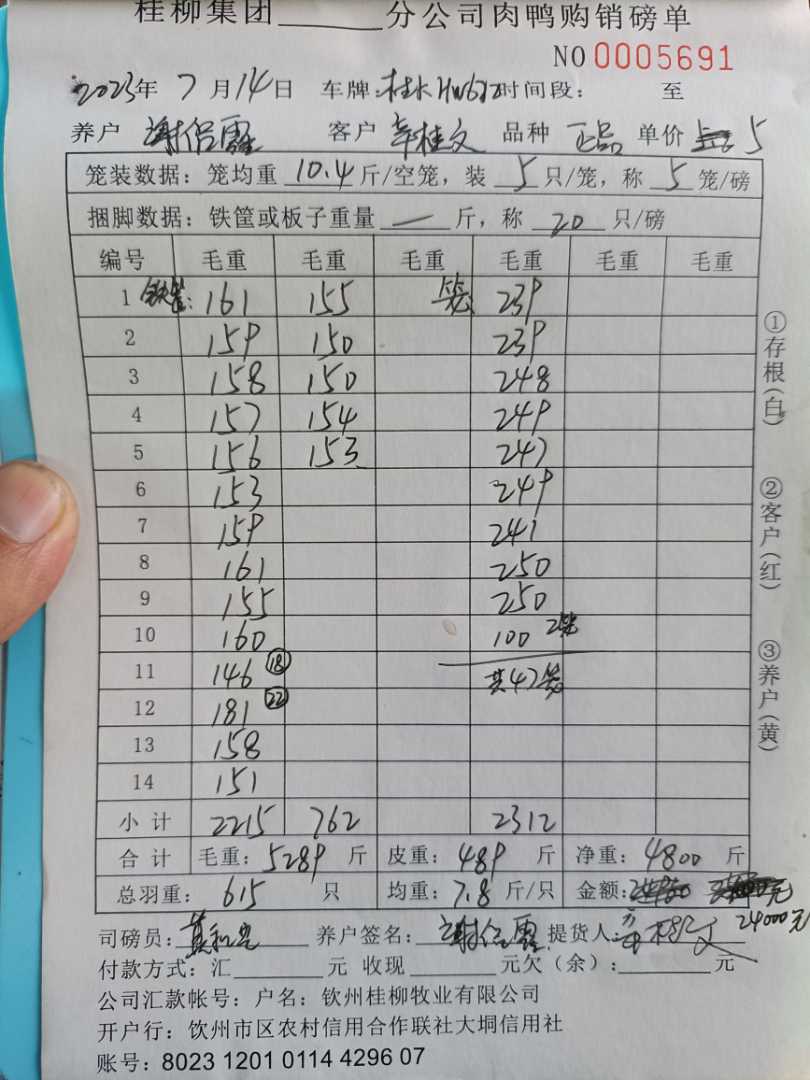 桂柳集团______分公司肉鸭购销磅单
NO 0005691
2023年 7月14日 车牌: 时间段: 至
养户 谢侣霞 客户 辛桂文 品种 正品 单价 5
笼装数据: 笼均重 10.4 斤/空笼, 装 5 只/笼, 称 5 笼/磅
捆脚数据: 铁筐或板子重量 — 斤, 称 20 只/磅
编号 毛重 毛重 毛重 毛重 毛重 毛重
1 铁筐: 161 155 笼 239
2 159 150 239
3 158 150 248
4 157 154 249
5 156 153 247
6 153 249
7 159 241
8 161 250
9 155 250
10 160 100 2笼
11 146 ⑱ 共47笼
12 181 ㉒
13 158
14 151
小计 2215 762 2312
合计 毛重: 5289 斤 皮重: 489 斤 净重: 4800 斤
总羽重: 615 只 均重: 7.8 斤/只 金额:
24000元
司磅员: 养户签名: 谢侣霞 提货人:
付款方式: 汇______元 收现______元欠(余):______元
公司汇款帐号: 户名: 钦州桂柳牧业有限公司
开户行: 饮州市区农村信用合作联社大垌信用社
账号: 8023 1201 0114 4296 07
①存根(白)
②客户(红)
③养户(黄)